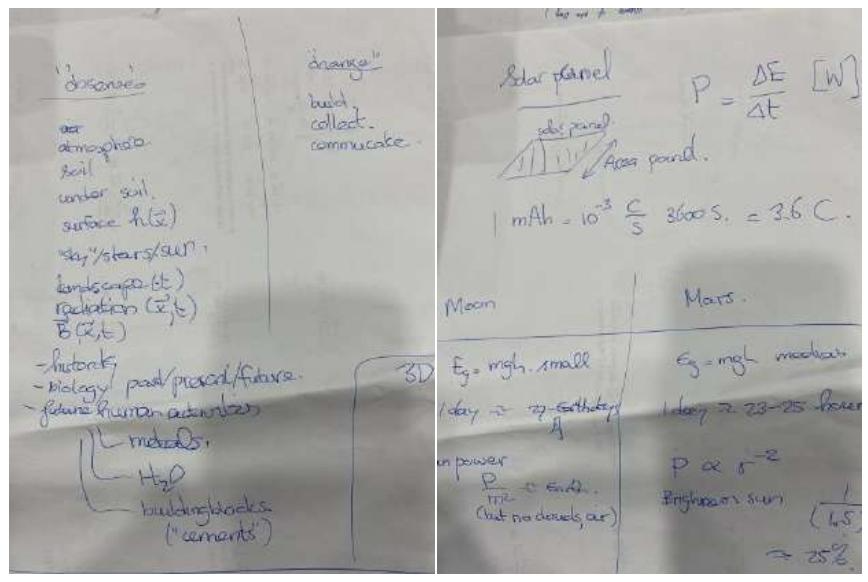 "observe"
atmosphere
soil
under soil.
surface h(x⃗)
"sky"/stars/sun.
landscape (t)
radiation (x⃗,t)
B⃗ (x⃗,t)
- history
- biology past/present/future.
- future human activities
metals.
H₂O
buildingblocks
("cements")
"change"
build.
collect.
commucate.
3D
Solar panel
P = ΔE/Δt [W]
solar panel
Area panel.
1 mAh = 10⁻³ C/S 3600 S. = 3.6 C.
Moon
Eg = mgh. small
1 day ≈ 27 Earthdays
power
P/m² = Earth.
(but no clouds, air)
Mars.
Eg = mgh medium
1 day ≈ 23-25 hours
P ∝ r⁻²
Brightness sun 1/(1.5)
≈ 25%